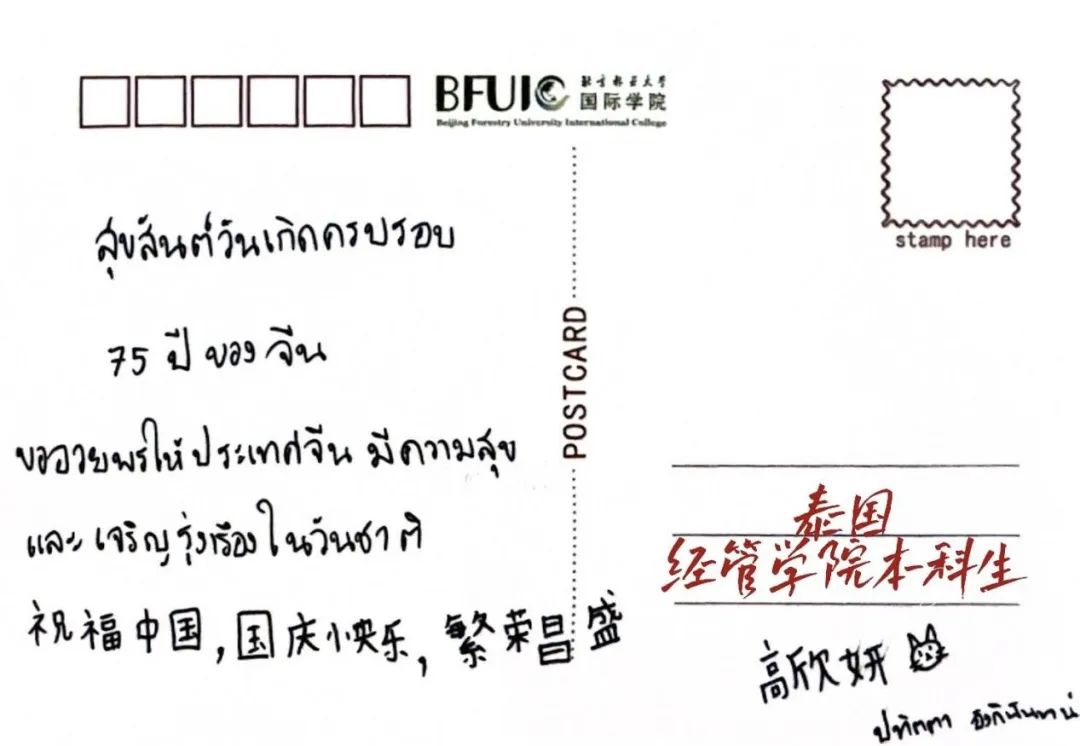 BFUIC 北京林业大学
国际学院
Beijing Forestry University International College
stamp here
POSTCARD
สุขสันต์วันเกิดครบรอบ
75 ปี ของ จีน
ขออวยพรให้ประเทศจีน มีความสุข
และ เจริญรุ่งเรืองในวันชาติ
祝福中国,国庆小快乐,繁荣昌盛
泰国
经管学院本科生
高欣妍
ปทิตตา